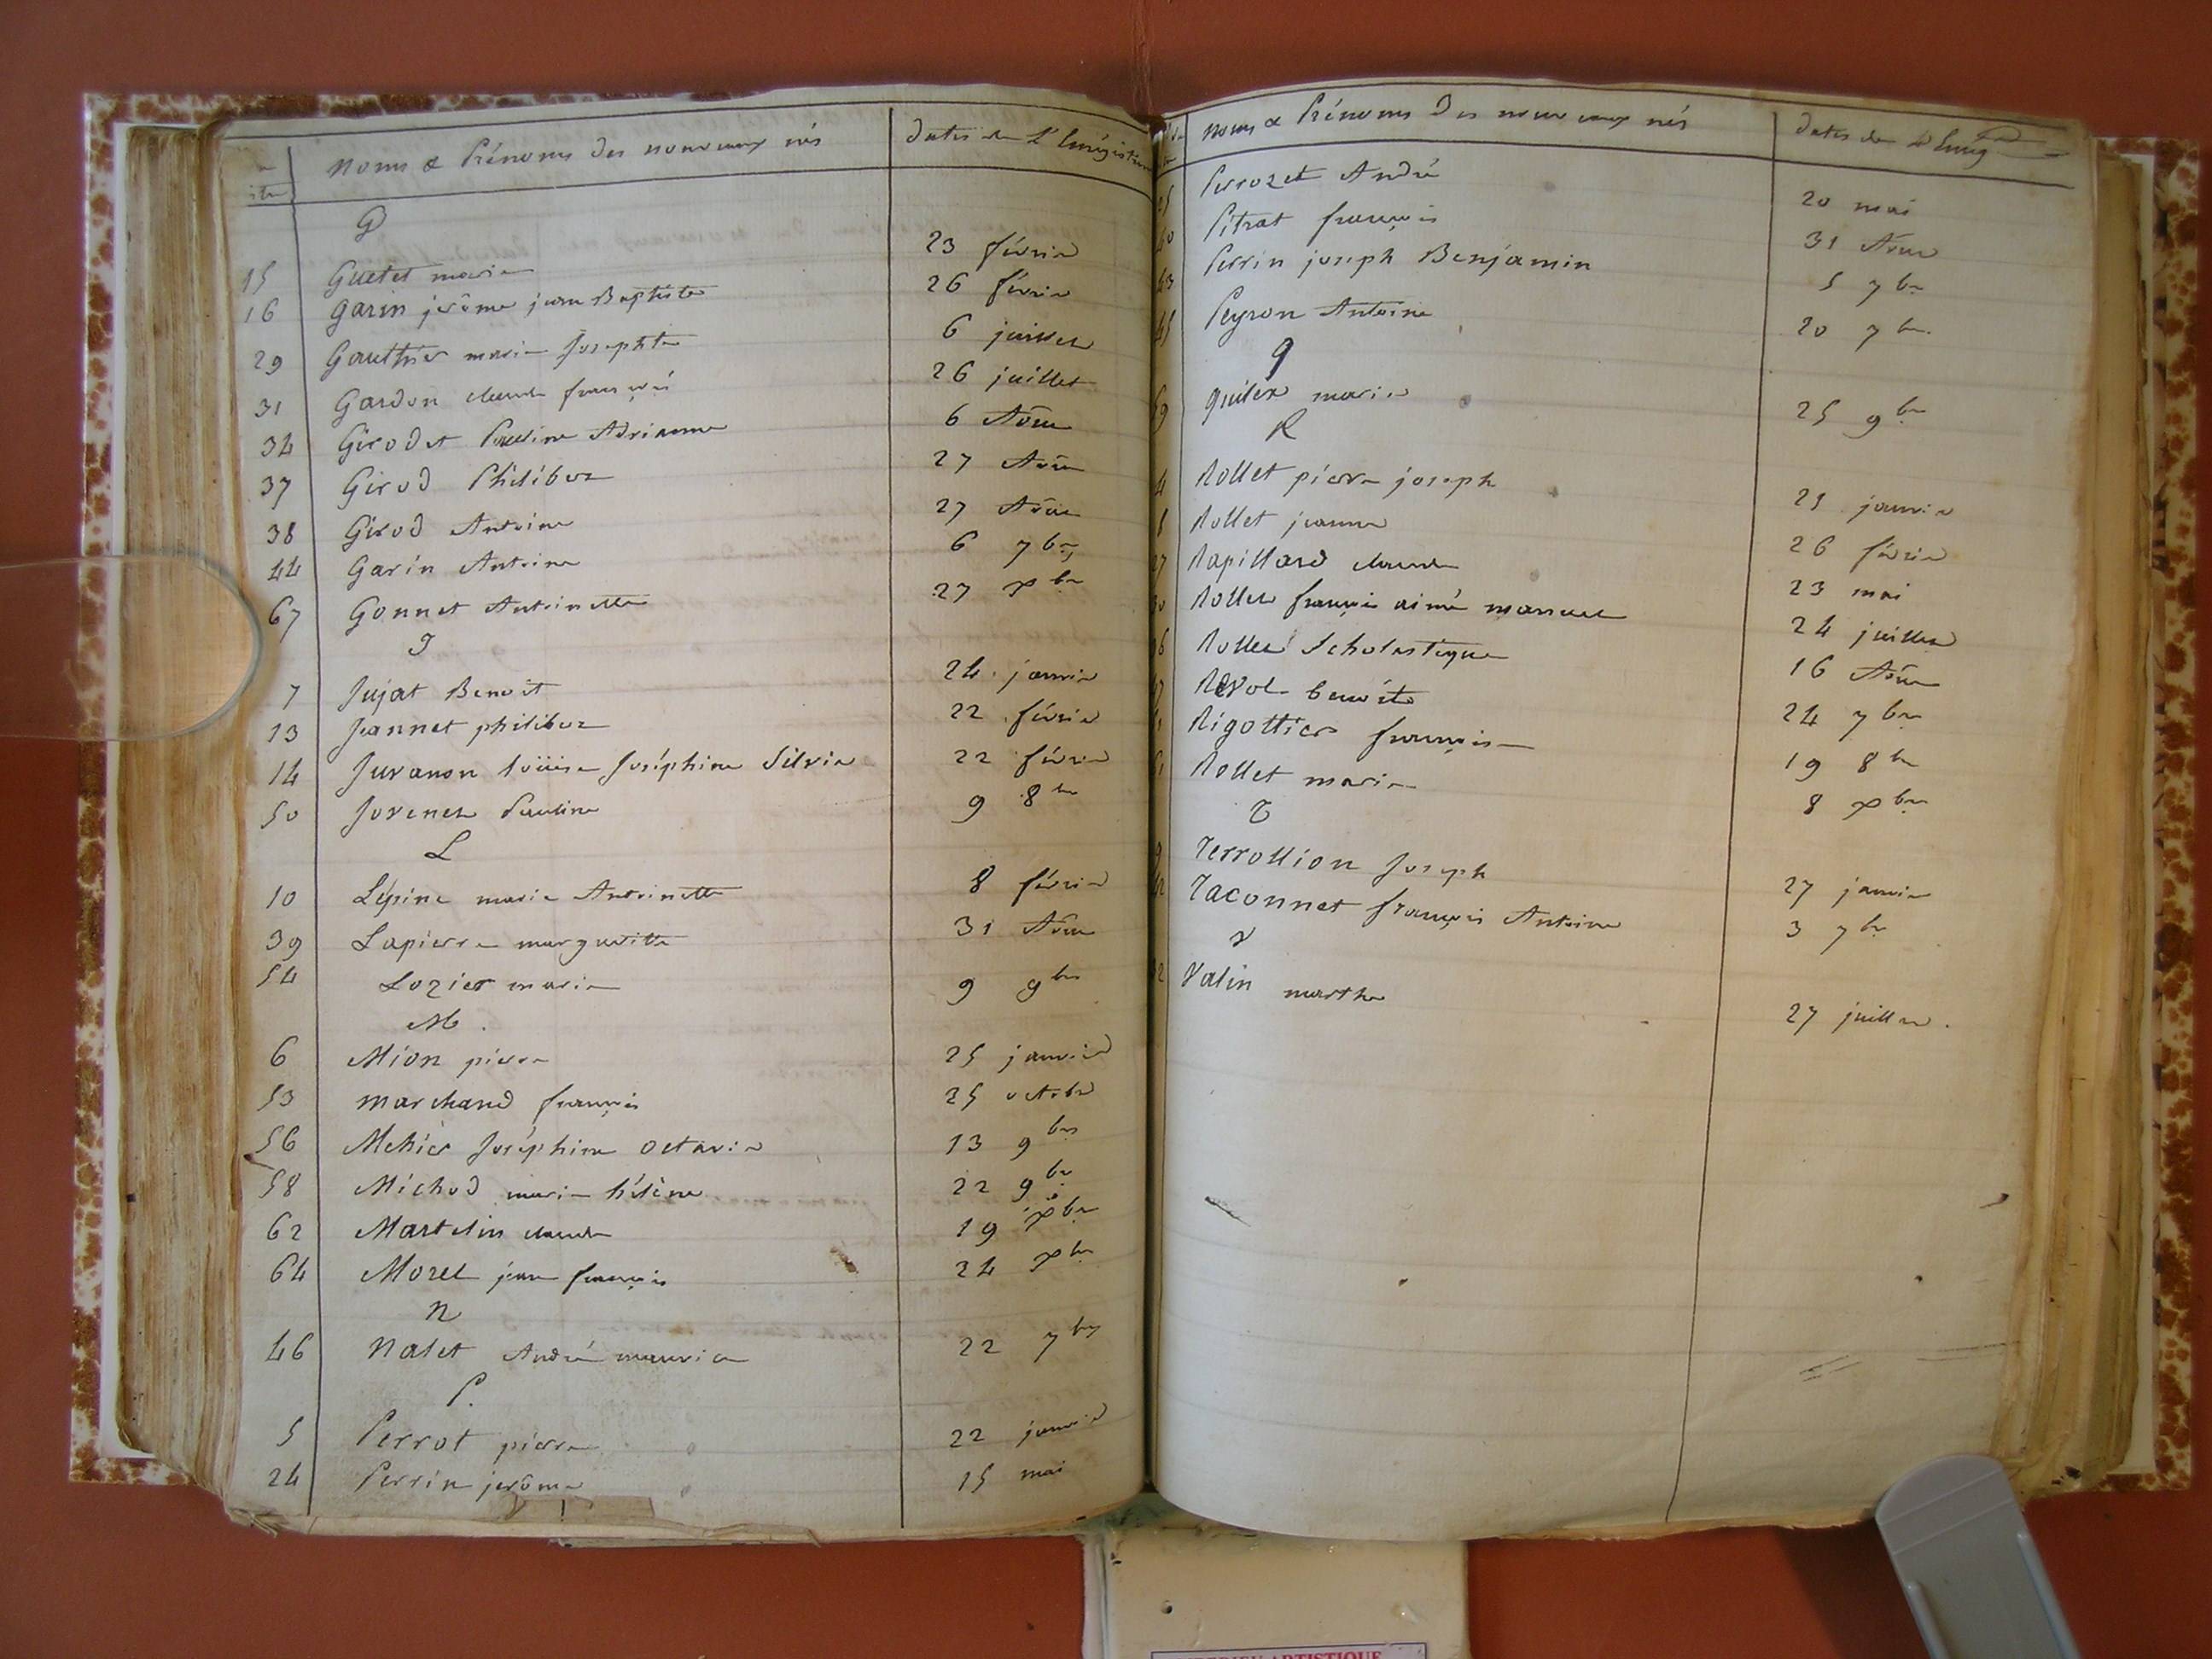 noms & Prénoms des nouveaux nés dates de l'Enrégistrem
G
15 Guetet marie 23 févrie
16 garin jérôme jean Baptiste 26 févrie
29 Gauthier marie Josephte 6 juillet
31 Gardon claude françois 26 juillet
34 Girodet Pauline Adrianne 6 Aôut
37 Girod Philiber 27 Aôut
38 Girod Antoine 27 Aôut
44 Garin Antoine 6 7bre
67 Gonnet Antoinette 27 xbre
J
7 Jujat Benoit 24 janvier
13 Jeannet philiber 22 févrie
14 Juvanon loüise Joséphine Silvie 22 févrie
50 Jovenet Pauline 9 8bre
L
10 Lépine marie Antoinette 8 févrie
39 Lapierre margueritte 31 Aôut
54 Lozier marie 9 9bre
M.
6 Mion pierre 25 janvier
53 marchand françois 25 octobre
56 Mehier Joséphine octavie 13 9bre
58 Michod marie hélène 22 9bre
62 Martelin claude 19 xbre
64 Morel jean françois 24 xbre
N
46 Nalet André maurice 22 7bre
P.
5 Perrot pierre 22 janvier
24 Perrin jerôme 15 mai
noms & Prénoms des nouveaux nés dates de l'Enreg
Perrozet André 20 mai
Pitrat françois 31 Aôut
Perrin joseph Benjamin 5 7bre
Peyron Antoine 20 7bre
q
quiler marie 25 9bre
R
4 Rollet pierre joseph 21 janvie
Rollet jeanne 26 févrie
Rapillard claude 23 mai
Rollet françois aimé manuel 24 juillet
Rollet Scholastique 16 Aôut
Revol benoite 24 7bre
Rigottier françois 19 8bre
Rollet marie 8 xbre
T
9 Terrollion Joseph 27 janvier
Taconnet françois Antoine 3 7bre
V
Valin marthe 27 juillet.